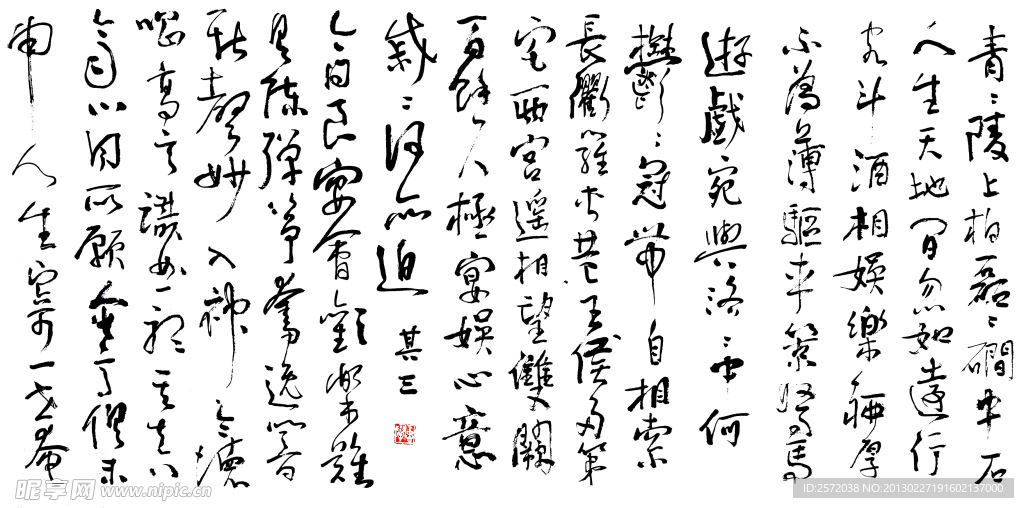 青々陵上柏磊々磵中石
人生天地間忽如遠行
客斗酒相娛樂聊厚
不為薄驅車策駑馬
遊戲宛與洛々中何
鬱々冠帶自相索
長衢羅夾巷王侯多第
宅兩宮遙相望雙闕
百餘尺極宴娛心意
戚々何所迫
其三
今日良宴會歡樂難
具陳彈箏奮逸響
新聲妙入神令德
唱高言識曲聽其真
齊心同所願含意俱未
申人生寄一世奄
昵享网 www.nipic.cn
ID:2572038 NO:20130227191602137000